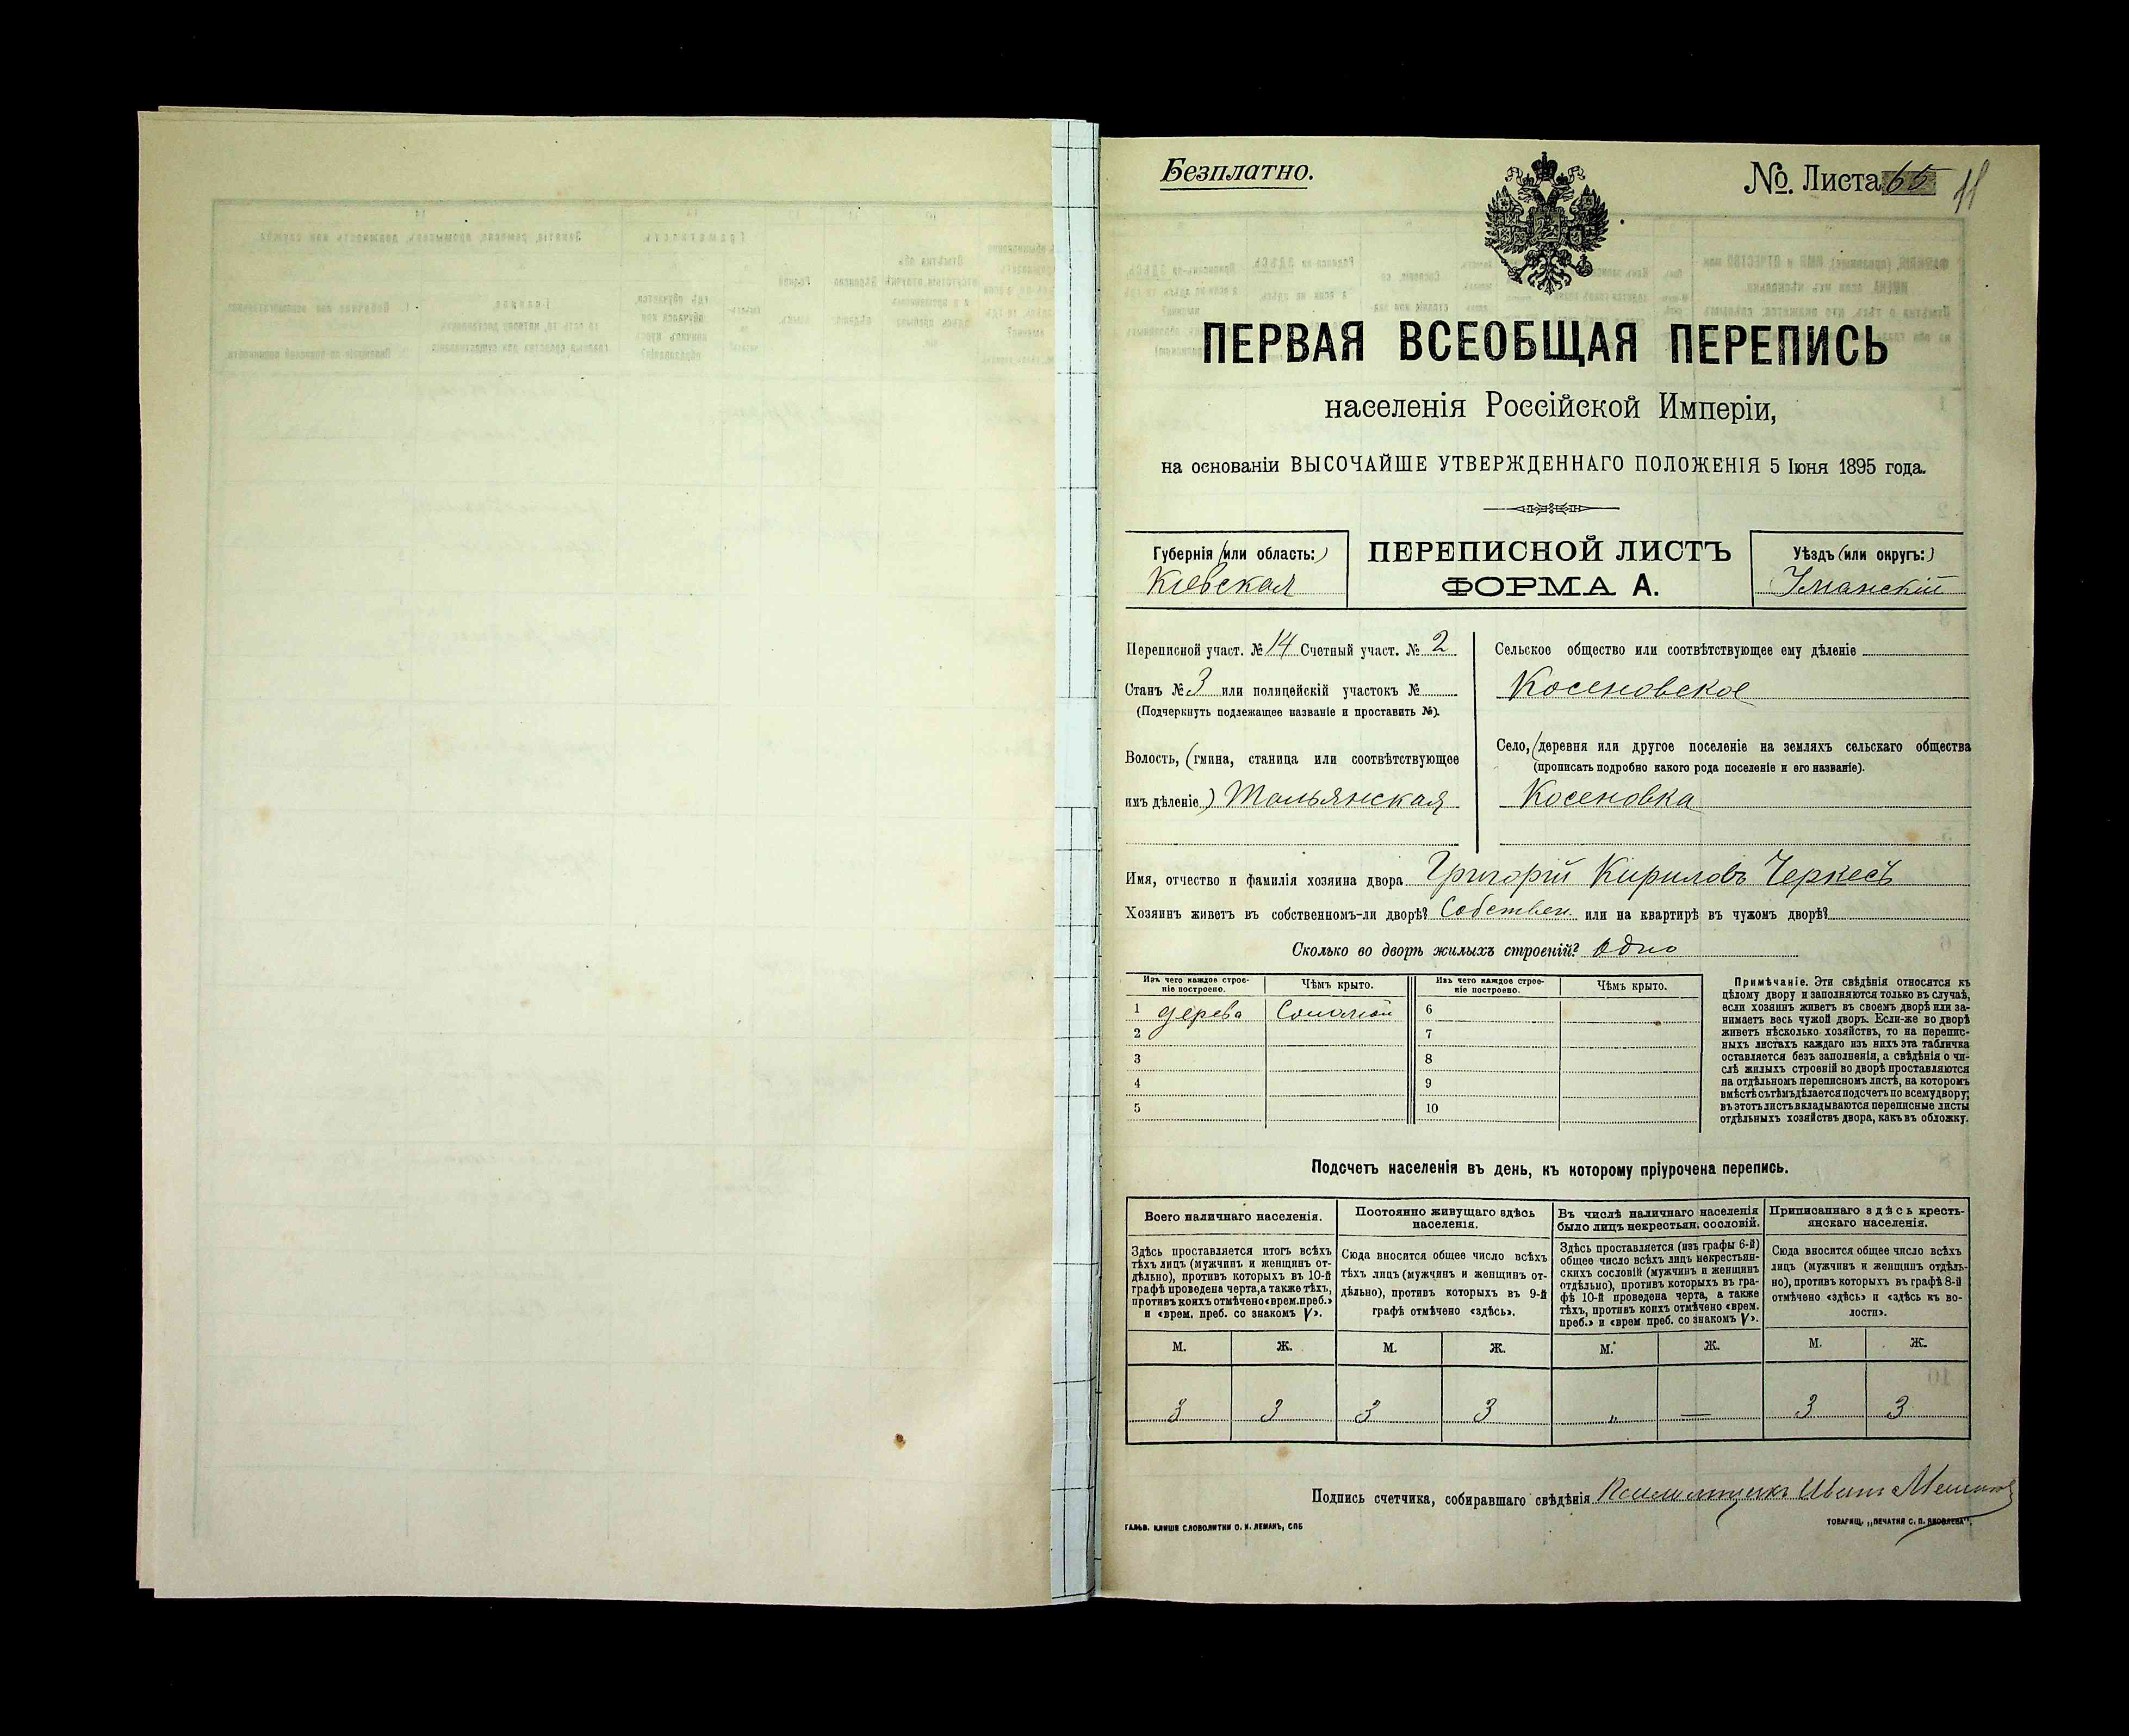 Безплатно.
№. Листа 65
11
ПЕРВАЯ ВСЕОБЩАЯ ПЕРЕПИСЬ
населенія Россійской Имперіи,
на основаніи ВЫСОЧАЙШЕ УТВЕРЖДЕННАГО ПОЛОЖЕНІЯ 5 Іюня 1895 года.
Губернія (или область:)
Кіевская
ПЕРЕПИСНОЙ ЛИСТЪ
ФОРМА А.
Уѣздъ (или округъ:)
Уманскій
Переписной участ. № 14 Счетный участ. № 2
Станъ № 3 или полицейскій участокъ №
(Подчеркнуть подлежащее названіе и проставить №).
Волость, (гмина, станица или соотвѣтствующее
имъ дѣленіе) Тальянская
Сельское общество или соотвѣтствующее ему дѣленіе
Косеновское
Село, (деревня или другое поселеніе на земляхъ сельскаго общества
(прописать подробно какого рода поселеніе и его названіе).
Косеновка
Имя, отчество и фамилія хозяина двора Григорій Кириловъ Черкесъ
Хозяинъ живетъ въ собственномъ-ли дворѣ? Собствен. или на квартирѣ въ чужомъ дворѣ?
Сколько во дворѣ жилыхъ строеній? Одно
Изъ чего каждое строе-
ніе построено.
Чѣмъ крыто.
Изъ чего каждое строе-
ніе построено.
Чѣмъ крыто.
1 дерева Соломой 6
2 7
3 8
4 9
5 10
Примѣчаніе. Эти свѣдѣнія относятся къ
цѣлому двору и заполняются только въ случаѣ,
если хозяинъ живетъ въ своемъ дворѣ или за-
нимаетъ весь чужой дворъ. Если-же во дворѣ
живетъ нѣсколько хозяйствъ, то на перепис-
ныхъ листахъ каждаго изъ нихъ эта табличка
оставляется безъ заполненія, а свѣдѣнія о чи-
слѣ жилыхъ строеній во дворѣ проставляются
на отдѣльномъ переписномъ листѣ, на которомъ
вмѣстѣ съ тѣмъ дѣлается подсчетъ по всему двору;
въ этотъ листъ вкладываются переписные листы
отдѣльныхъ хозяйствъ двора, какъ въ обложку.
Подсчетъ населенія въ день, къ которому пріурочена перепись.
Всего наличнаго населенія.
Здѣсь проставляется итогъ всѣхъ
тѣхъ лицъ (мужчинъ и женщинъ от-
дѣльно), противъ которыхъ въ 10-й
графѣ проведена черта, а также тѣхъ,
противъ коихъ отмѣчено «врем. преб.»
и «врем. преб. со знакомъ V».
Постоянно живущаго здѣсь
населенія.
Сюда вносится общее число всѣхъ
тѣхъ лицъ (мужчинъ и женщинъ от-
дѣльно), противъ которыхъ въ 9-й
графѣ отмѣчено «здѣсь».
Въ числѣ наличнаго населенія
было лицъ некрестьян. сословій.
Здѣсь проставляется (изъ графы 6-й)
общее число всѣхъ лицъ некрестьян-
скихъ сословій (мужчинъ и женщинъ
отдѣльно), противъ которыхъ въ гра-
фѣ 10-й проведена черта, а также
тѣхъ, противъ коихъ отмѣчено «врем.
преб.» и «врем преб. со знакомъ V».
Приписаннаго здѣсь кресть-
янскаго населенія.
Сюда вносится общее число всѣхъ
лицъ (мужчинъ и женщинъ отдѣль-
но), противъ которыхъ въ графѣ 8-й
отмѣчено «здѣсь» и «здѣсь къ во-
лости».
М. Ж. М. Ж. М. Ж. М. Ж.
3 3 3 3 „ — 3 3
Подпись счетчика, собиравшаго свѣдѣнія Иванъ
ГАЛЬВ. КЛИШЕ СЛОВОЛИТНИ О. И. ЛЕМАНЪ, СПБ
ТОВАРИЩ. „ПЕЧАТНЯ С. П. ЯКОВЛЕВА“.